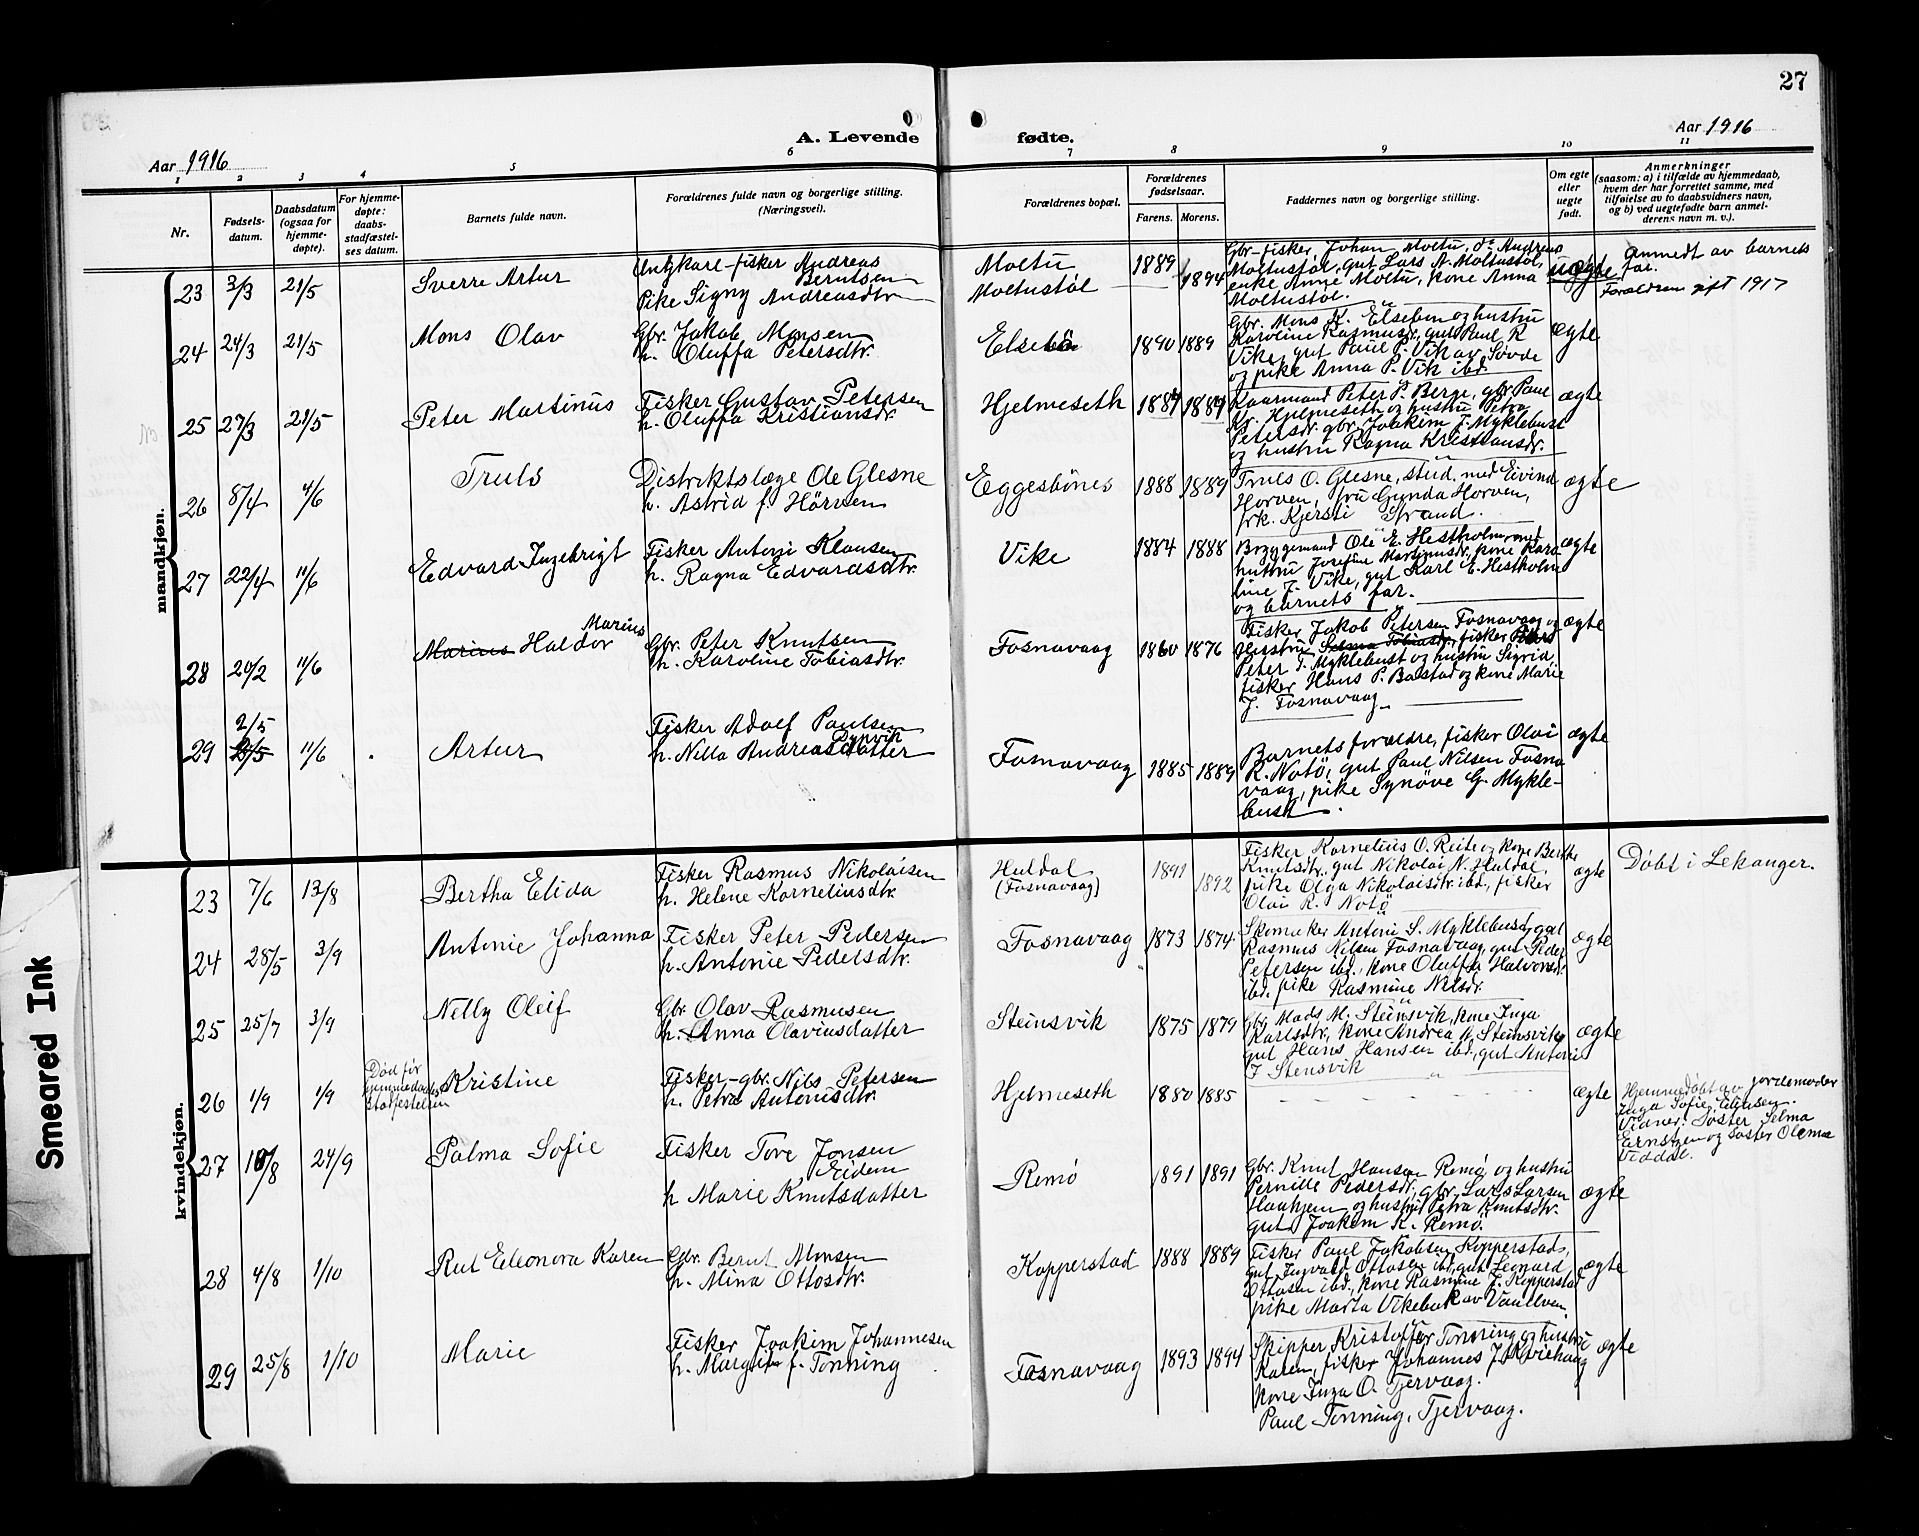 27
A. Levende fødte.
Aar 1916
Aar 1916
1 2 3 4 5 6 7 8 9 10 11
Nr.
Fødsels-
datum.
Daabsdatum
(ogsaa for
hjemme-
døpte).
For hjemme-
døpte:
daabs-
stadfæstel-
ses datum.
Barnets fulde navn.
Forældrenes fulde navn og borgerlige stilling.
(Næringsvei).
Forældrenes bopæl.
Forældrenes
fødselsaar.
Farens. Morens.
Faddernes navn og borgerlige stilling.
Om egte
eller
uegte
født.
Anmerkninger
(saasom: a) i tilfælde av hjemmedaab,
hvem der har forrettet samme, med
tilføielse av to daabsvidners navn,
og b) ved uegtefødte barn anmel-
derens navn m. v.).
mandkjøn.
23 3/3 21/5 Sverre Artur
Ungkarl-fisker Andreas
Berntsen
Pike Signy Andreasdtr
Moltu
Moltustøl
1889 1894
Gbr-fisker Johan Moltu, do Andreas
Moltustøl, gut Lars A. Moltustøl,
enke Anne Moltu, kone Anna
Moltustøl.
uægte
Anmedt av barnets
far.
Forældren gift 1917
24 24/3 21/5 Mons Olav
Gbr. Jakob Monsen
h. Oluffa Petersdtr.
Elsebö
1890 1889
Gbr. Mons K. Elsebøn og hustru
Karoline Rasmusdr, gut Paul R
Vike, gut Paul P. Vik av Søvde
og pike Anna P. Vik ibd
ægte
25 27/3 21/5 Peter Martinus
Fisker Gustav Petersen
h. Oluffa Kristiansdr.
Hjelmeseth
1887 1889
Kaarmand Peter P. Berge, gbr Paul
Kr. Hjelmeseth og hustru Petra
Petersdr. gbr. Joakim J. Myklebust
og hustru Ragna Kristiansdr.
ægte
26 8/4 4/6 Truls
Distriktslæge Ole Glesne
h. Astrid f. Hörven
Eggesbönes
1888 1889
Truls O. Glesne, stud. med Eivind
Horven, fru Gunda Horven,
frk. Kjersti Strand.
ægte
27 22/4 11/6 Edvard Ingebrigt
Fisker Antoni Klausen
h. Ragna Edvardsdtr.
Vike
1884 1888
Bryggemand Ole E. Hestholm med
hustru Josefine Martinusdr, kone Karo
line J. Vike, gut Karl E. Hestholm
og barnets far.
ægte
28 20/2 11/6 Marius Haldor Marius
Gbr. Peter Knutsen
h. Karoline Tobiasdtr.
Fosnavaag
1860 1876
Fisker Jakob Petersen Fosnavaag og
Hustru Selma Tobiasdr, fisker
Peter T. Myklebust og hustru Sigrid
fisker Hans P. Bolstad og kone Marie
J. Fosnavaag
ægte
2/5
29 2/5 11/6 Artur
Fisker Adolf Paulsen
Dynvik
h. Nilla Andreasdatter
Fosnavaag
1885 1889
Barnets forældre, fisker Olai
R. Notö, gut Paul Nilsen Fosna
vaag, pike Synöve G. Mykle-
bust.
ægte
kvindekjøn.
23 7/6 13/8 Bertha Elida
Fisker Rasmus Nikolaisen
h. Helene Korneliusdtr.
Huldal
(Fosnavaag)
1891 1892
Fisker Kornelius O. Reite og kone Berthe
Knutsdtr. gut Nikolai N. Huldal,
pike Olga Nikolaisdtr. ibd., fisker
Olai R. Notö
ægte
Döbt i Lekanger.
24 28/5 3/9 Antonie Johanna
Fisker Peter Pedersen
h. Antonie Pedersdtr.
Fosnavaag
1873 1874
Skomaker Antoni S. Myklebust, gut
Rasmus Nilsen Fosnavaag, gut Peder
Petersen ibd., kone Oluffa Halvorsdr.
ibd. pike Rasmine Nilsdr.
ægte
25 25/7 3/9 Nelly Oleif
Gbr. Olav Rasmusen
h. Anna Olaviusdatter
Steinsvik
1875 1879
Gbr. Mads M. Steinsvik, kone Inga
Karlsdtr., kone Andrea M. Steinsvik,
gut Hans Hansen ibd., gut Antoni
J Stensvik
ægte
26 1/9 1/9
Död för
hjemmedaabs
stadfestelsen
Kristine
Fisker-gbr. Nils Petersen
h. Petra Antonisdtr.
Hjelmeseth
1880 1885
ægte
Hjemmedöbt av jordemoder
Inga Sofie Ellingsen.
Vidner: Söster Selma
Ernstzen og söster Olema
Veddal.
27 10/8 24/9 Palma Sofie
Fisker Tore Jonsen
Eidem
h Marie Knutsdatter
Remö
1891 1891
Gbr. Knut Hansen Remö og hustru
Pernille Pedersdr., gbr. Lars Larsen
Haukjem og hustru Petra Knutsdtr.
gut Joakim K. Remö.
ægte
28 4/8 1/10 Rut Eleonora Karen
Gbr. Bernt Monsen
h. Mina Ottosdtr.
Kopperstad
1888 1889
Fisker Paul Jakobsen Kopperstad,
gut Ingvald Ottosen ibd, gut Leonard
Ottosen ibd., kone Rasmine J. Kopperstad
pike Marta Vikebuk av Vanilven
ægte
29 25/8 1/10 Marie
Fisker Joakim Johannesen
h. Margit f. Tonning
Fosnavaag
1893 1894
Skipper Kristoffer Tonning og hustru
Karen, fisker Johannes J. Kviehaug
kone Inga O. Tjervaag.
Paul Tonning, Tjervaag.
ægte
Smeared Ink